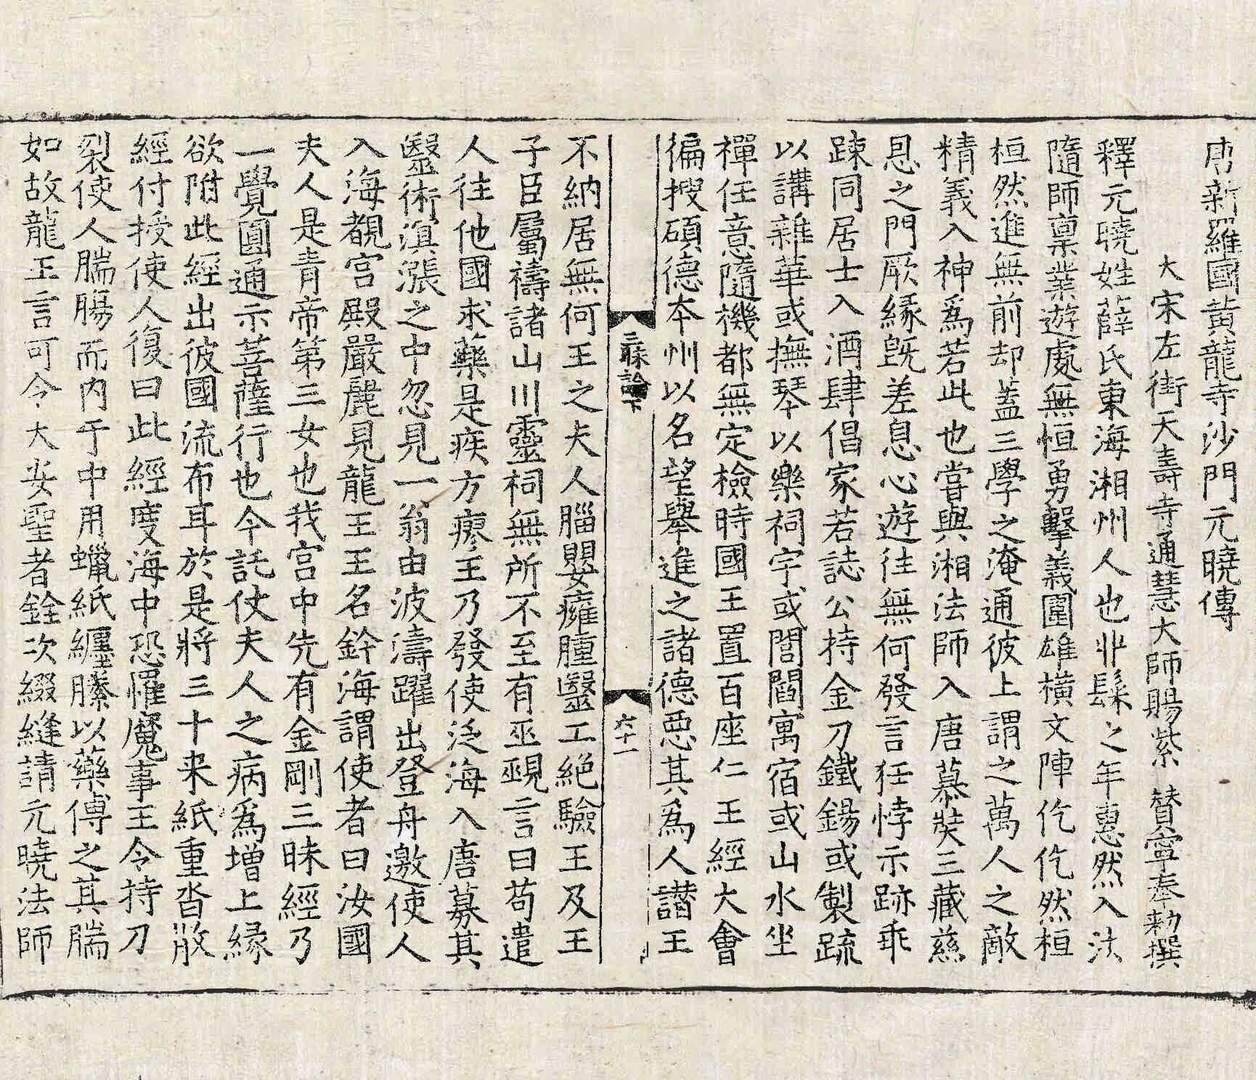 唐新羅國黃龍寺沙門元曉傳
大宋左街天壽寺通慧大師賜紫 贊寧奉勑撰
釋元曉姓薛氏東海湘州人也丱䰂之年惠然入法
隨師稟業遊處無恒勇擊義圍雄橫文陣仡仡然桓
桓然進無前却蓋三學之淹通彼土謂之萬人之敵
精義入神爲若此也甞與湘法師入唐慕奘三藏慈
恩之門厥緣旣差息心遊往無何發言狂悖示跡乖
踈同居士入酒肆倡家若誌公持金刀鐵錫或製䟽
以講雜華或撫琴以樂祠宇或閭閻寓宿或山水坐
禪任意隨機都無定檢時國王置百座仁王經大會
徧搜碩德本州以名望舉進之諸德惡其爲人譖王
三昧論下
六十一
不納居無何王之夫人腦嬰癰腫毉工絶驗王及王
子臣屬禱諸山川靈祠無所不至有巫覡言曰苟遣
人往他國求藥是疾方瘳王乃發使泛海入唐募其
毉術溟漲之中忽見一翁由波濤躍出登舟邀使人
入海覩宮殿嚴麗見龍王王名鈐海謂使者曰汝國
夫人是青帝第三女也我宮中先有金剛三昧經乃
一覺圓通示菩薩行也今託仗夫人之病爲增上緣
欲附此經出彼國流布耳於是將三十来紙重沓散
經付授使人復曰此經度海中恐罹魔事王令持刀
裂使人腨膓而内于中用蠟紙纏縢以藥傅之其腨
如故龍王言可令大安聖者銓次綴縫請元曉法師